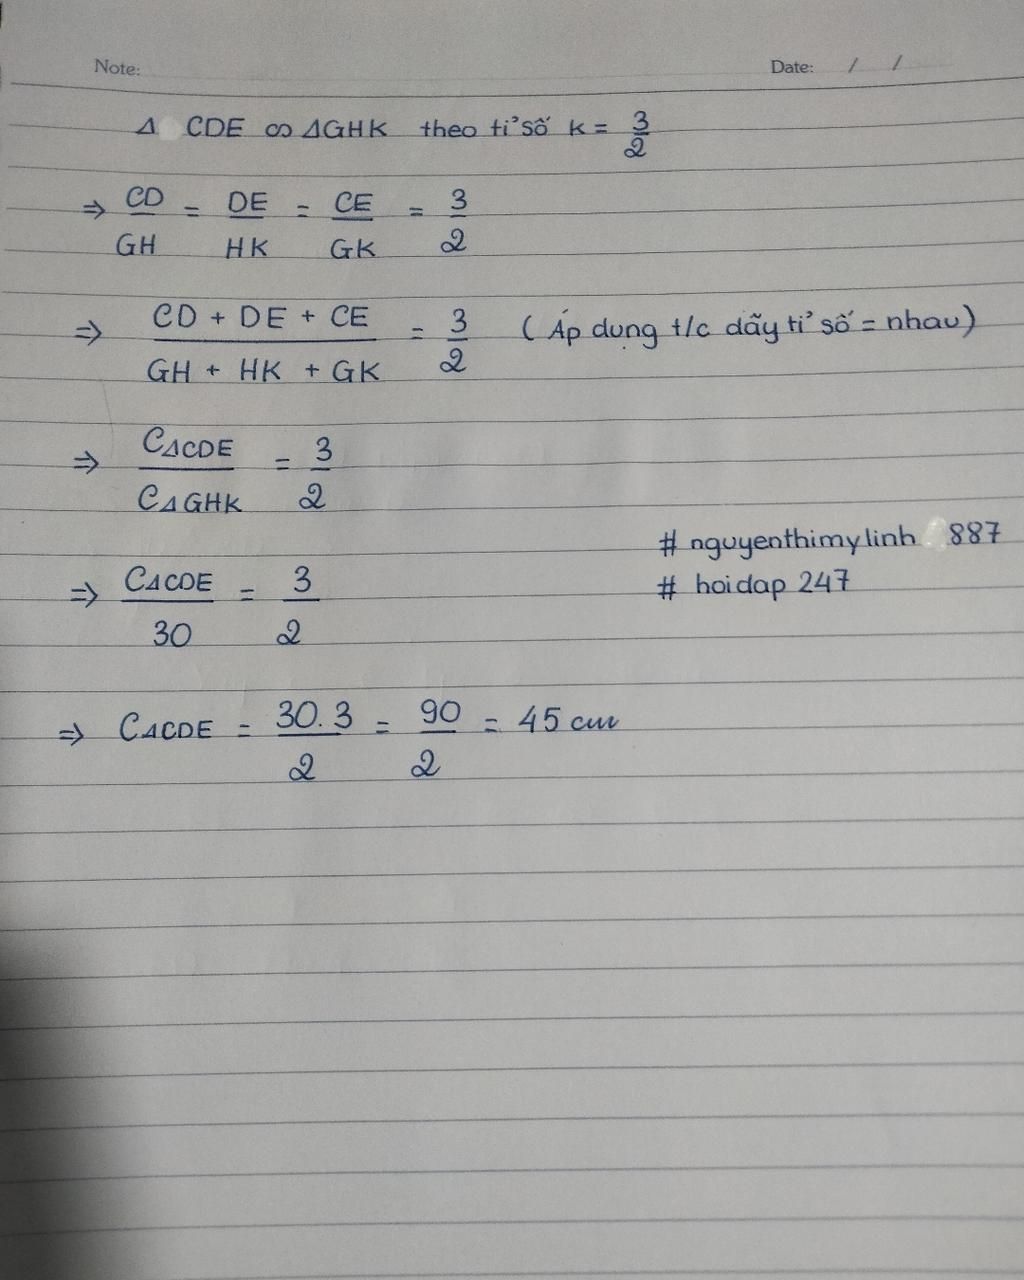 Note: Date: / /
Δ CDE ∽ ΔGHK theo tỉ số k = 3/2
⇒ CD/GH = DE/HK = CE/GK = 3/2
⇒ CD + DE + CE / GH + HK + GK = 3/2 (Áp dụng t/c dãy tỉ số = nhau)
⇒ CΔCDE/CΔGHK = 3/2
# nguyenthimylinh 887
⇒ CΔCDE/30 = 3/2
# hoidap 247
⇒ CΔCDE = 30.3/2 = 90/2 = 45 cm